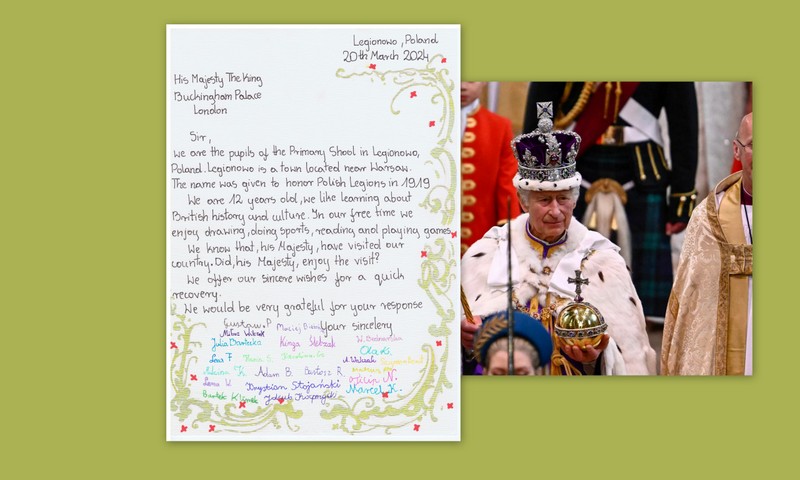 Legionowo, Poland
20th March 2024
His Majesty The King
Buckingham Palace
London
Sir,
we are the pupils of the Primary Shool in Legionowo,
Poland. Legionowo is a town located near Warsaw.
The name was given to honor Polish Legions in 1919
We are 12 years old, we like learning about
British history and culture. In our free time we
enjoy drawing, doing sports, reading and playing games
We know that, his Majesty, have visited our
country. Did, his Majesty, enjoy the visit?
We offer our sincere wishes for a quick
recovery.
We would be very grateful for your response
Your sincelery
Gustaw. P Maciej
Julia Kinga
Lena F
Olaf
Adam B. Bartosz R.
Lena W. Krystian Stojański Filip N.
Bartek Klimek Jakub Marcel K.